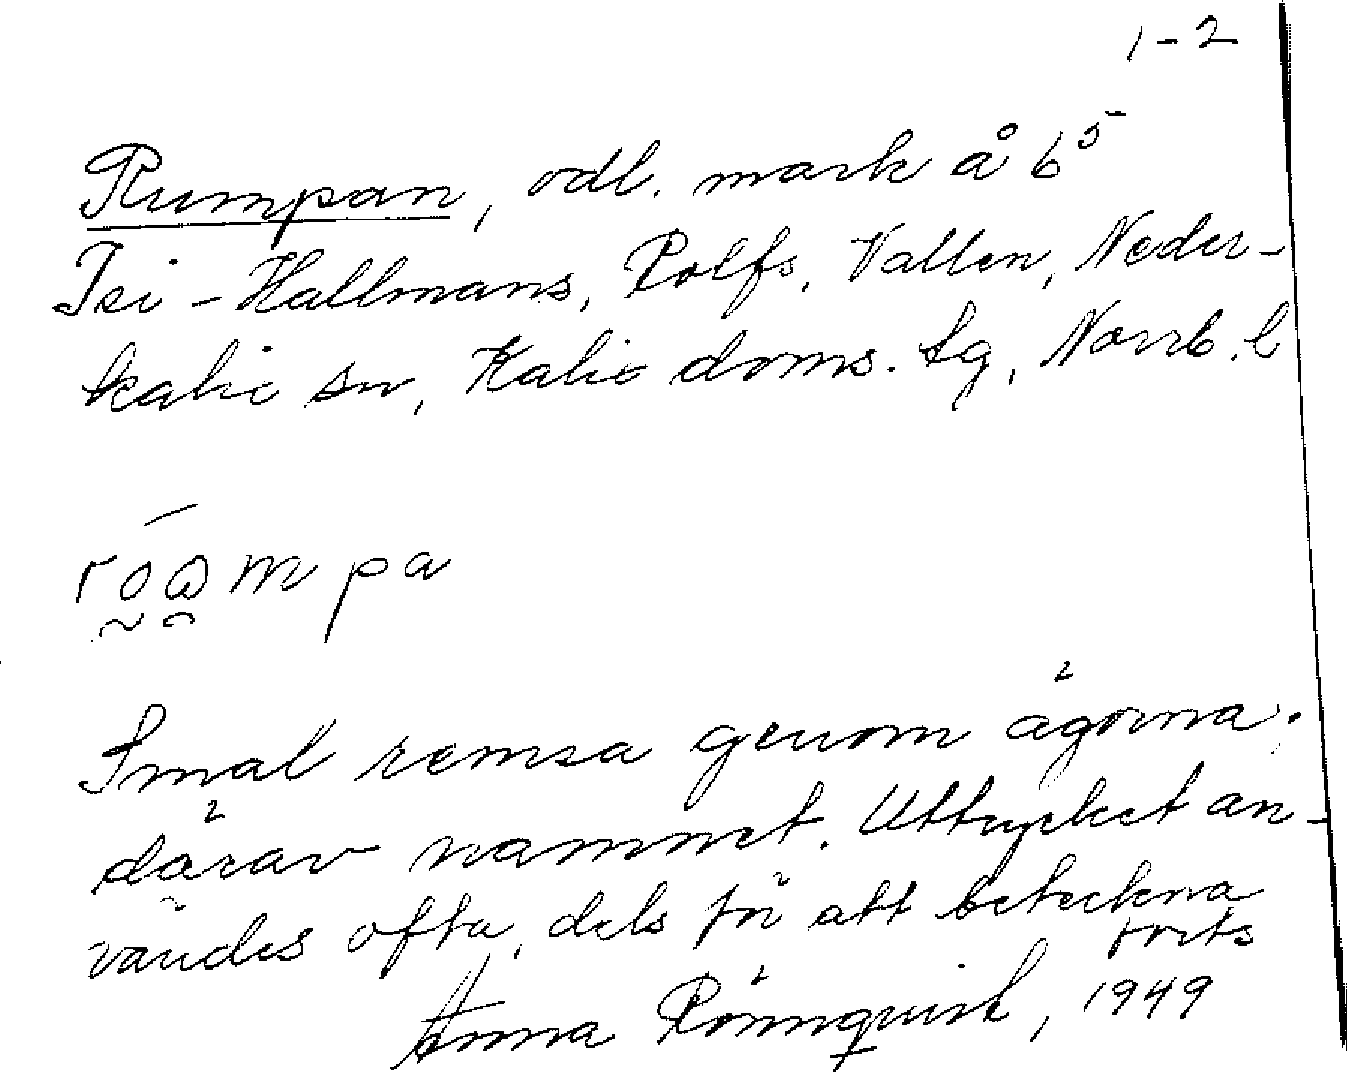 1-2
Rumpan, odl. mark å 6⁵
Isi - Hallmans, Rolfs, Vallen, Neder-
kalix sn, Kalix doms. tg, Norrb. l
Smal remsa genom ägorna;
därav namnet. Uttrycket an-
vändes ofta, dels för att beteckna
forts
Anna Rönnqvist, 1949